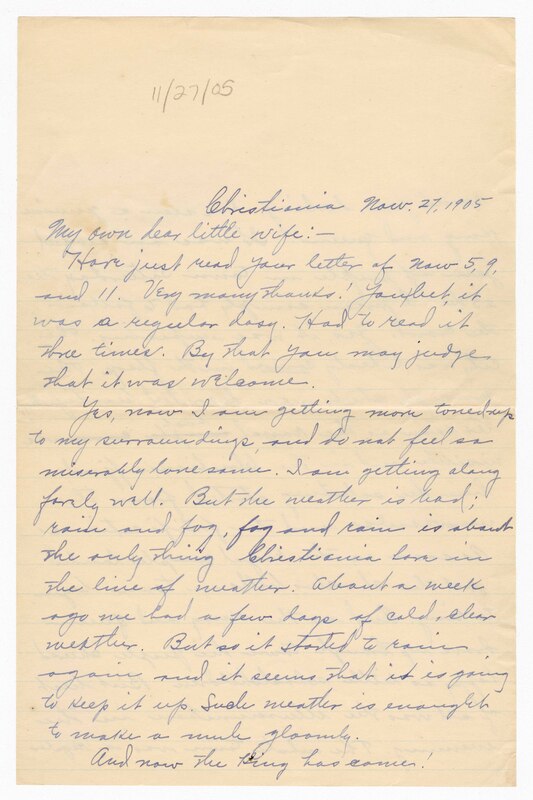 11/27/05
Christiania Nov. 27, 1905
My own dear little wife:-
Have just read your letter of Nov 5, 9,
and 11. Very many thanks! You bet, it
was a regular dasy. Had to read it
three times. By that you may judge
that it was welcome.
Yes, now I am getting more toned up
to my surroundings, and do not feel so
miserably lonesome. I am getting along
farely well. But the weather is bad;
rain and fog, fog and rain is about
the only thing Christiania have in
the line of weather. About a week
ago we had a few days of cold, clear
weather. But so it started to rain
again, and it seems that it is going
to keep it up. Such weather is enought
to make a mule gloomly.
And now the King has come!